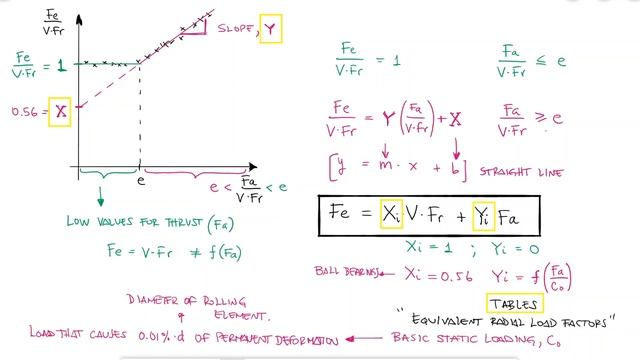 Fe/V·Fr
SLOPE, Y
Fe/V·Fr = 1
0.56 = X
e
e < Fa/V·Fr < e
LOW VALUES FOR THRUST (Fa)
Fe = V·Fr ≠ f(Fa)
Fe/V·Fr = 1 Fa/V·Fr ≤ e
Fe/V·Fr = Y (Fa/V·Fr) + X Fa/V·Fr ≥ e
[y = m · x + b] STRAIGHT LINE
Fe = Xi V·Fr + Yi Fa
Xi = 1 ; Yi = 0
BALL BEARINGS Xi = 0.56 Yi = f(Fa/Co)
TABLES
"EQUIVALENT RADIAL LOAD FACTORS"
DIAMETER OF ROLLING
ELEMENT.
LOAD THAT CAUSES 0.01%·d OF PERMANENT DEFORMATION ← BASIC STATIC LOADING, Co